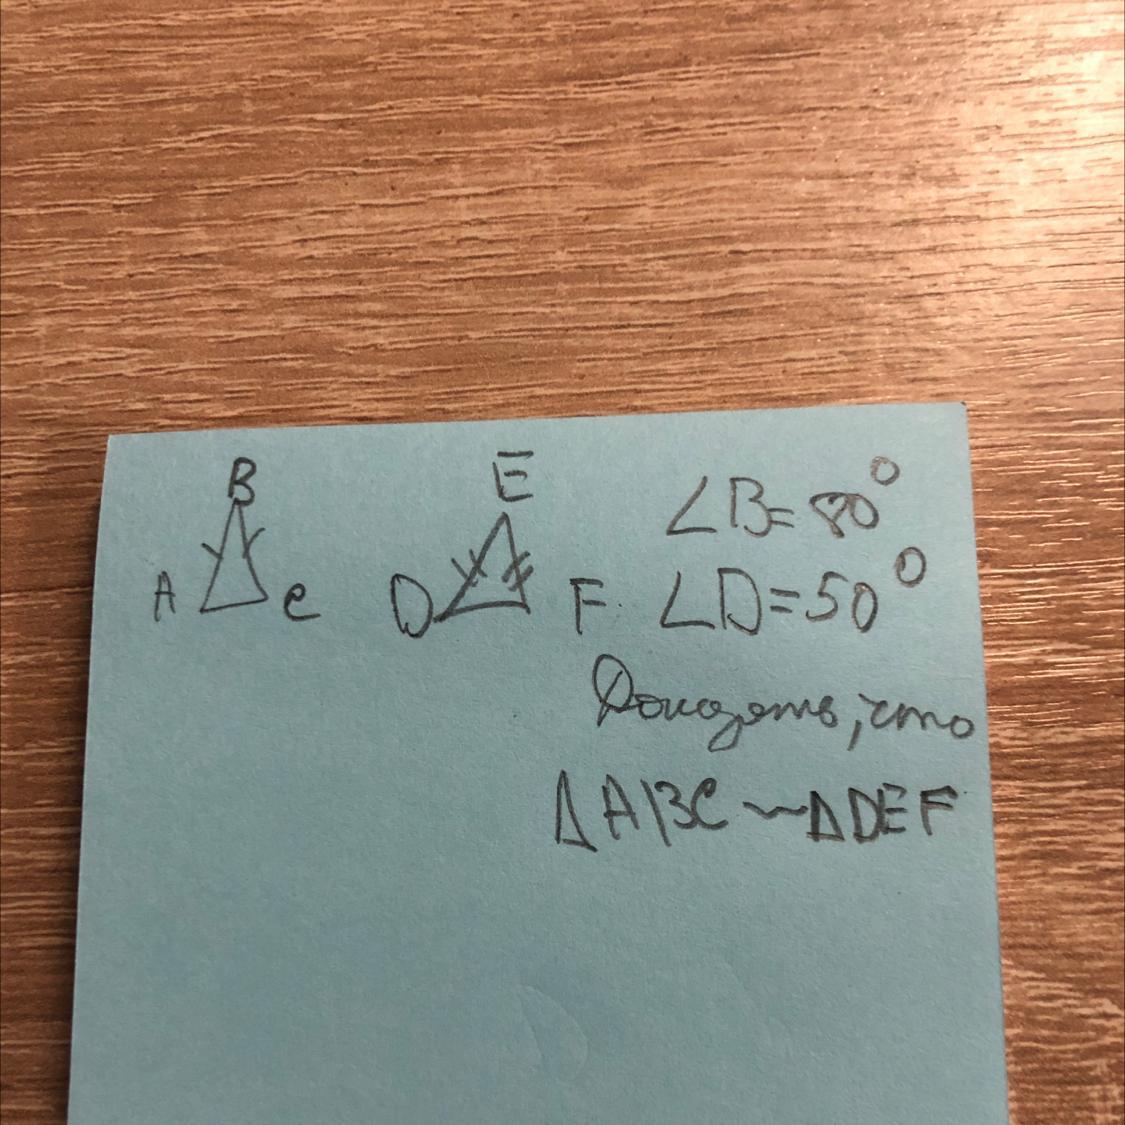 B
E
A
C
D
F.
∠B=80°
∠D=50°
Доказать, что
ΔABC ~ ΔDEF